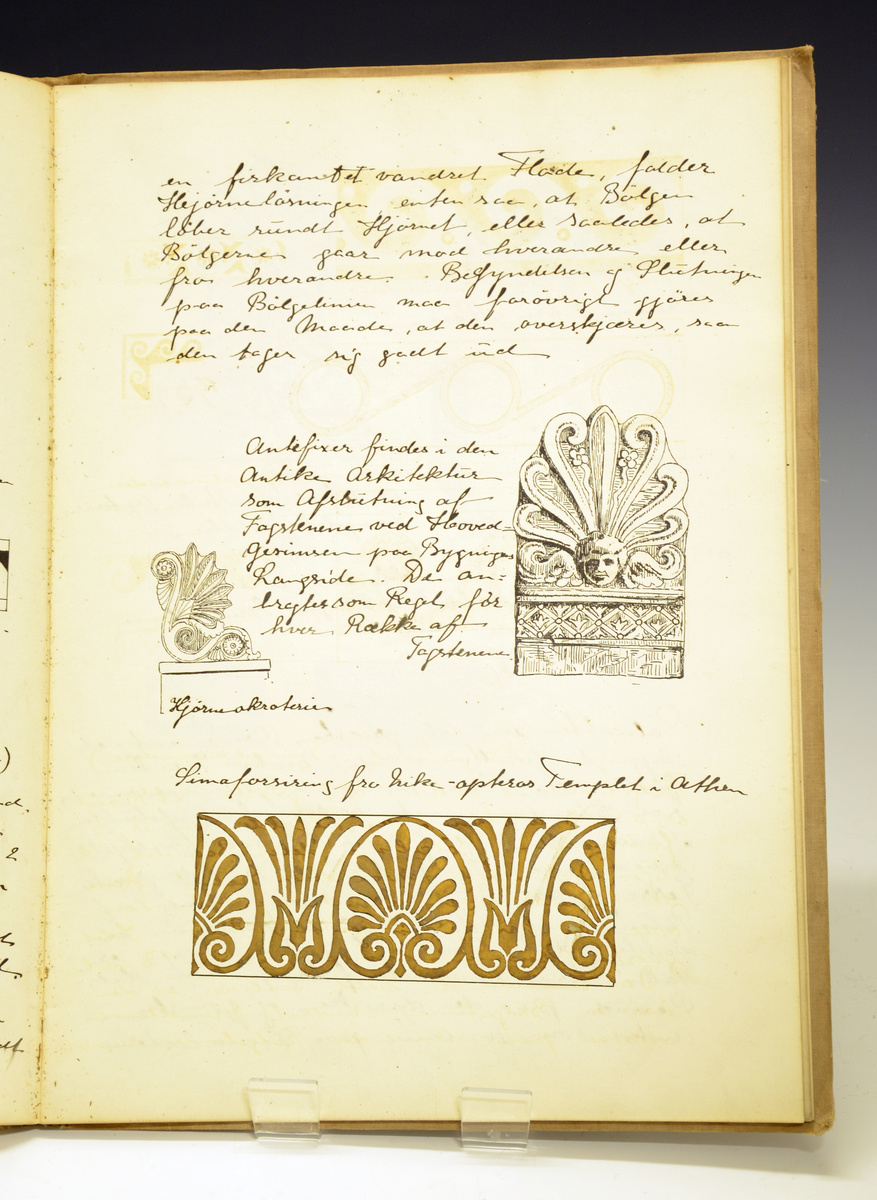 en firkantet vandret Flade, falder
Hejørneløsningen enten saa, at Bölgen
löber rundt Hjörnet, eller saaledes, at
Bölgerne gaar mod hverandre eller
fra hverandre. Begyndelsen og Slutningen
paa Bölgelinien maa forövrigt gjöres
paa den Maade, at den overskjæres, saa
den tager sig godt ud
Antefixer findes i den
Antike Arkitektur
som Afslutning af
Tagstenene ved Hoved-
gesimsen paa Bygnings
Langside. De an-
bragtes som Regel för
hver Række af
Tagstenene
Hjörneakroterie
Simaforsiring fra Nike-apteros Templet i Athen